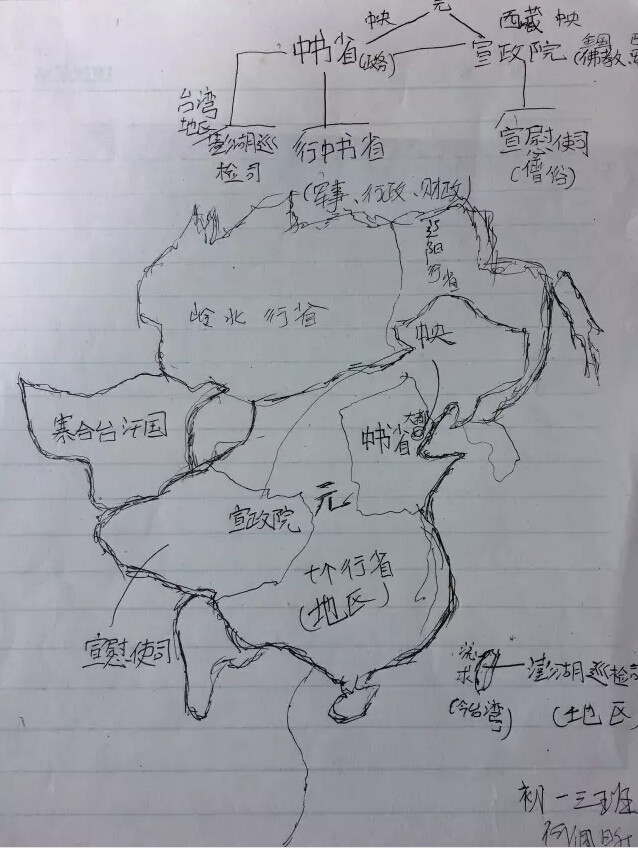 元
中央
中书省
(政务)
西藏 中央
宣政院
全国
佛教
台湾
地区
澎湖巡
检司
行中书省
(军事、行政、财政)
宣慰使司
(僧俗)
辽阳行省
岭北行省
中央
寨合台汗国
大都
中书省
宣政院
元
七个行省
(地区)
宣慰使司
流求
(今台湾)
澎湖巡检司
(地区)
初一三班